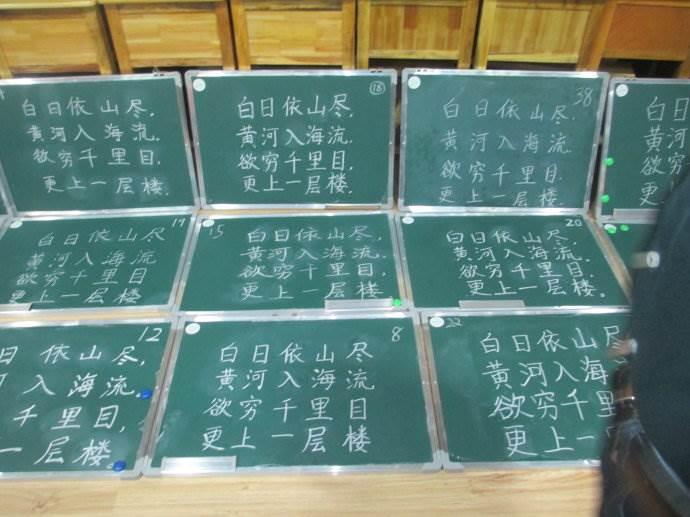 白日依山尽,
黄河入海流.
欲穷千里目,
更上一层楼.
18
白日依山尽,
黄河入海流.
欲穷千里目,
更上一层楼.
38
白日依山尽,
黄河入海流.
欲穷千里目,
更上一层楼.
白日
黄河
欲穷
更上
白日依山尽
黄河入海流
欲穷千里目
更上一层楼
15
白日依山尽,
黄河入海流.
欲穷千里目,
更上一层楼
20
白日依山尽,
黄河入海流.
欲穷千里目,
更上一层楼。
12
日依山尽,
入海流.
千里目,
一层楼.
8
白日依山尽
黄河入海流
欲穷千里目
更上一层楼
22
白日依山
黄河入海
欲穷千里
更上一层